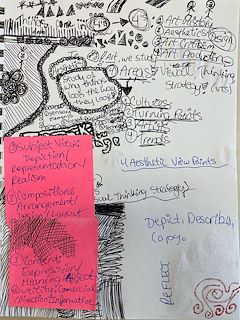 4's
① Art History
② Aesthetics
③ Art Criticism
④ Art Production
In Art, we study
4 Areas
Visual Thinking
Strategy (VTS)
study of
why things
look the way
they look
① Cultures
② Turning Points
③ Artists
④ Trends
4 Aesthetic View Points
① Subject View:
Depiction/
Representation/
Realism
② Compositions
Arrangement/
Design/Layout
③ Content:
Expression/
Meaning
④ Utility: Commercial/
Direction/Informative
Visual Thinking Strategy
Depict, Describe,
Copy.
REFLECT